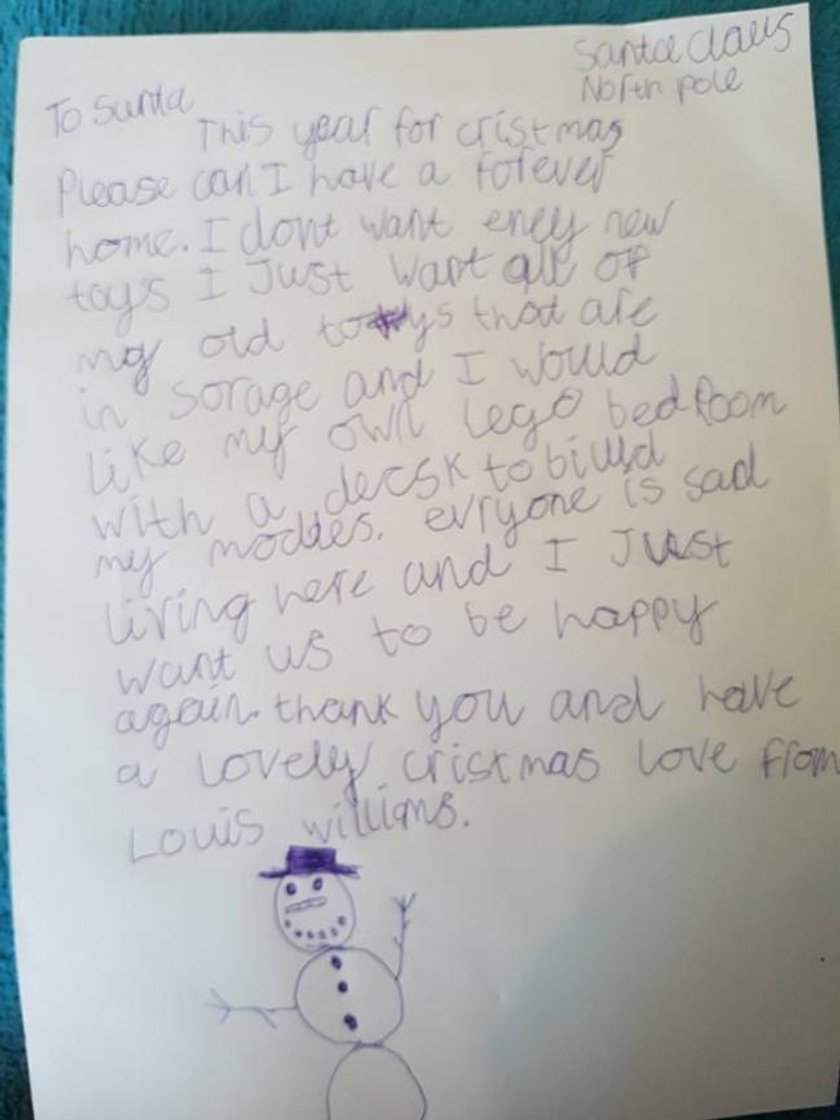 Santa claus
North pole
To Santa
This year for cristmas
Please can I have a forever
home. I dont want eney new
toys I Just want all of
my old toys that are
in sorage and I would
like my own lego bedroom
with a decsk to biuld
my moddes. evryone is sad
living here and I Just
want us to be happy
again. thank you and have
a lovely cristmas love from
Louis williams.